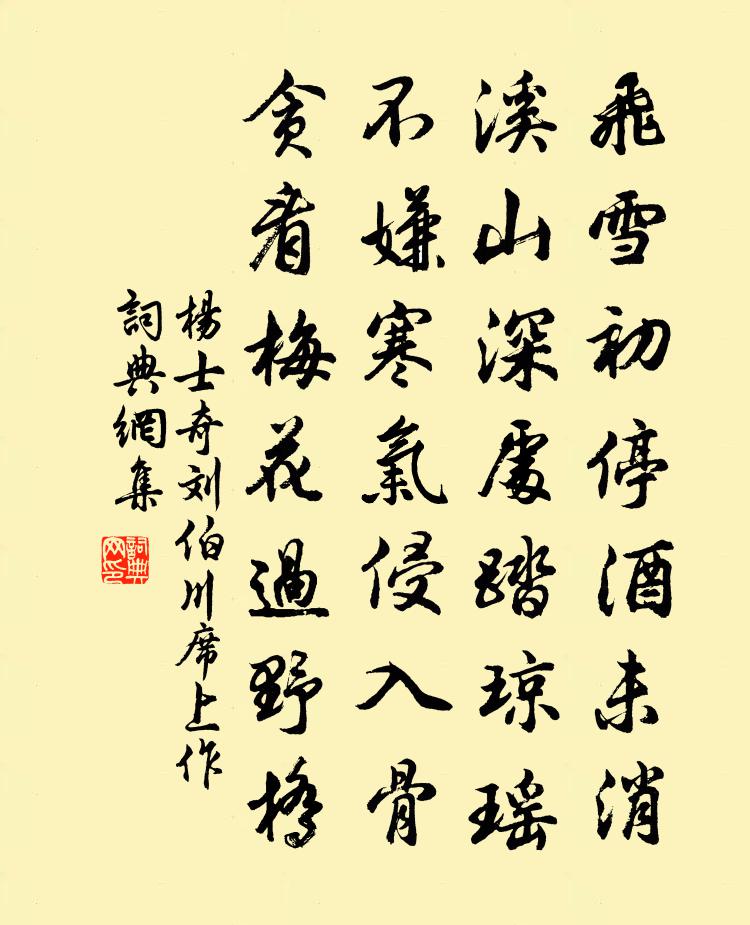 飛雪初停酒未消
溪山深處踏瓊瑤
不嫌寒氣侵入骨
貪看梅花過野橋
楊士奇刘伯川席上作
詞典網集
詞典網印